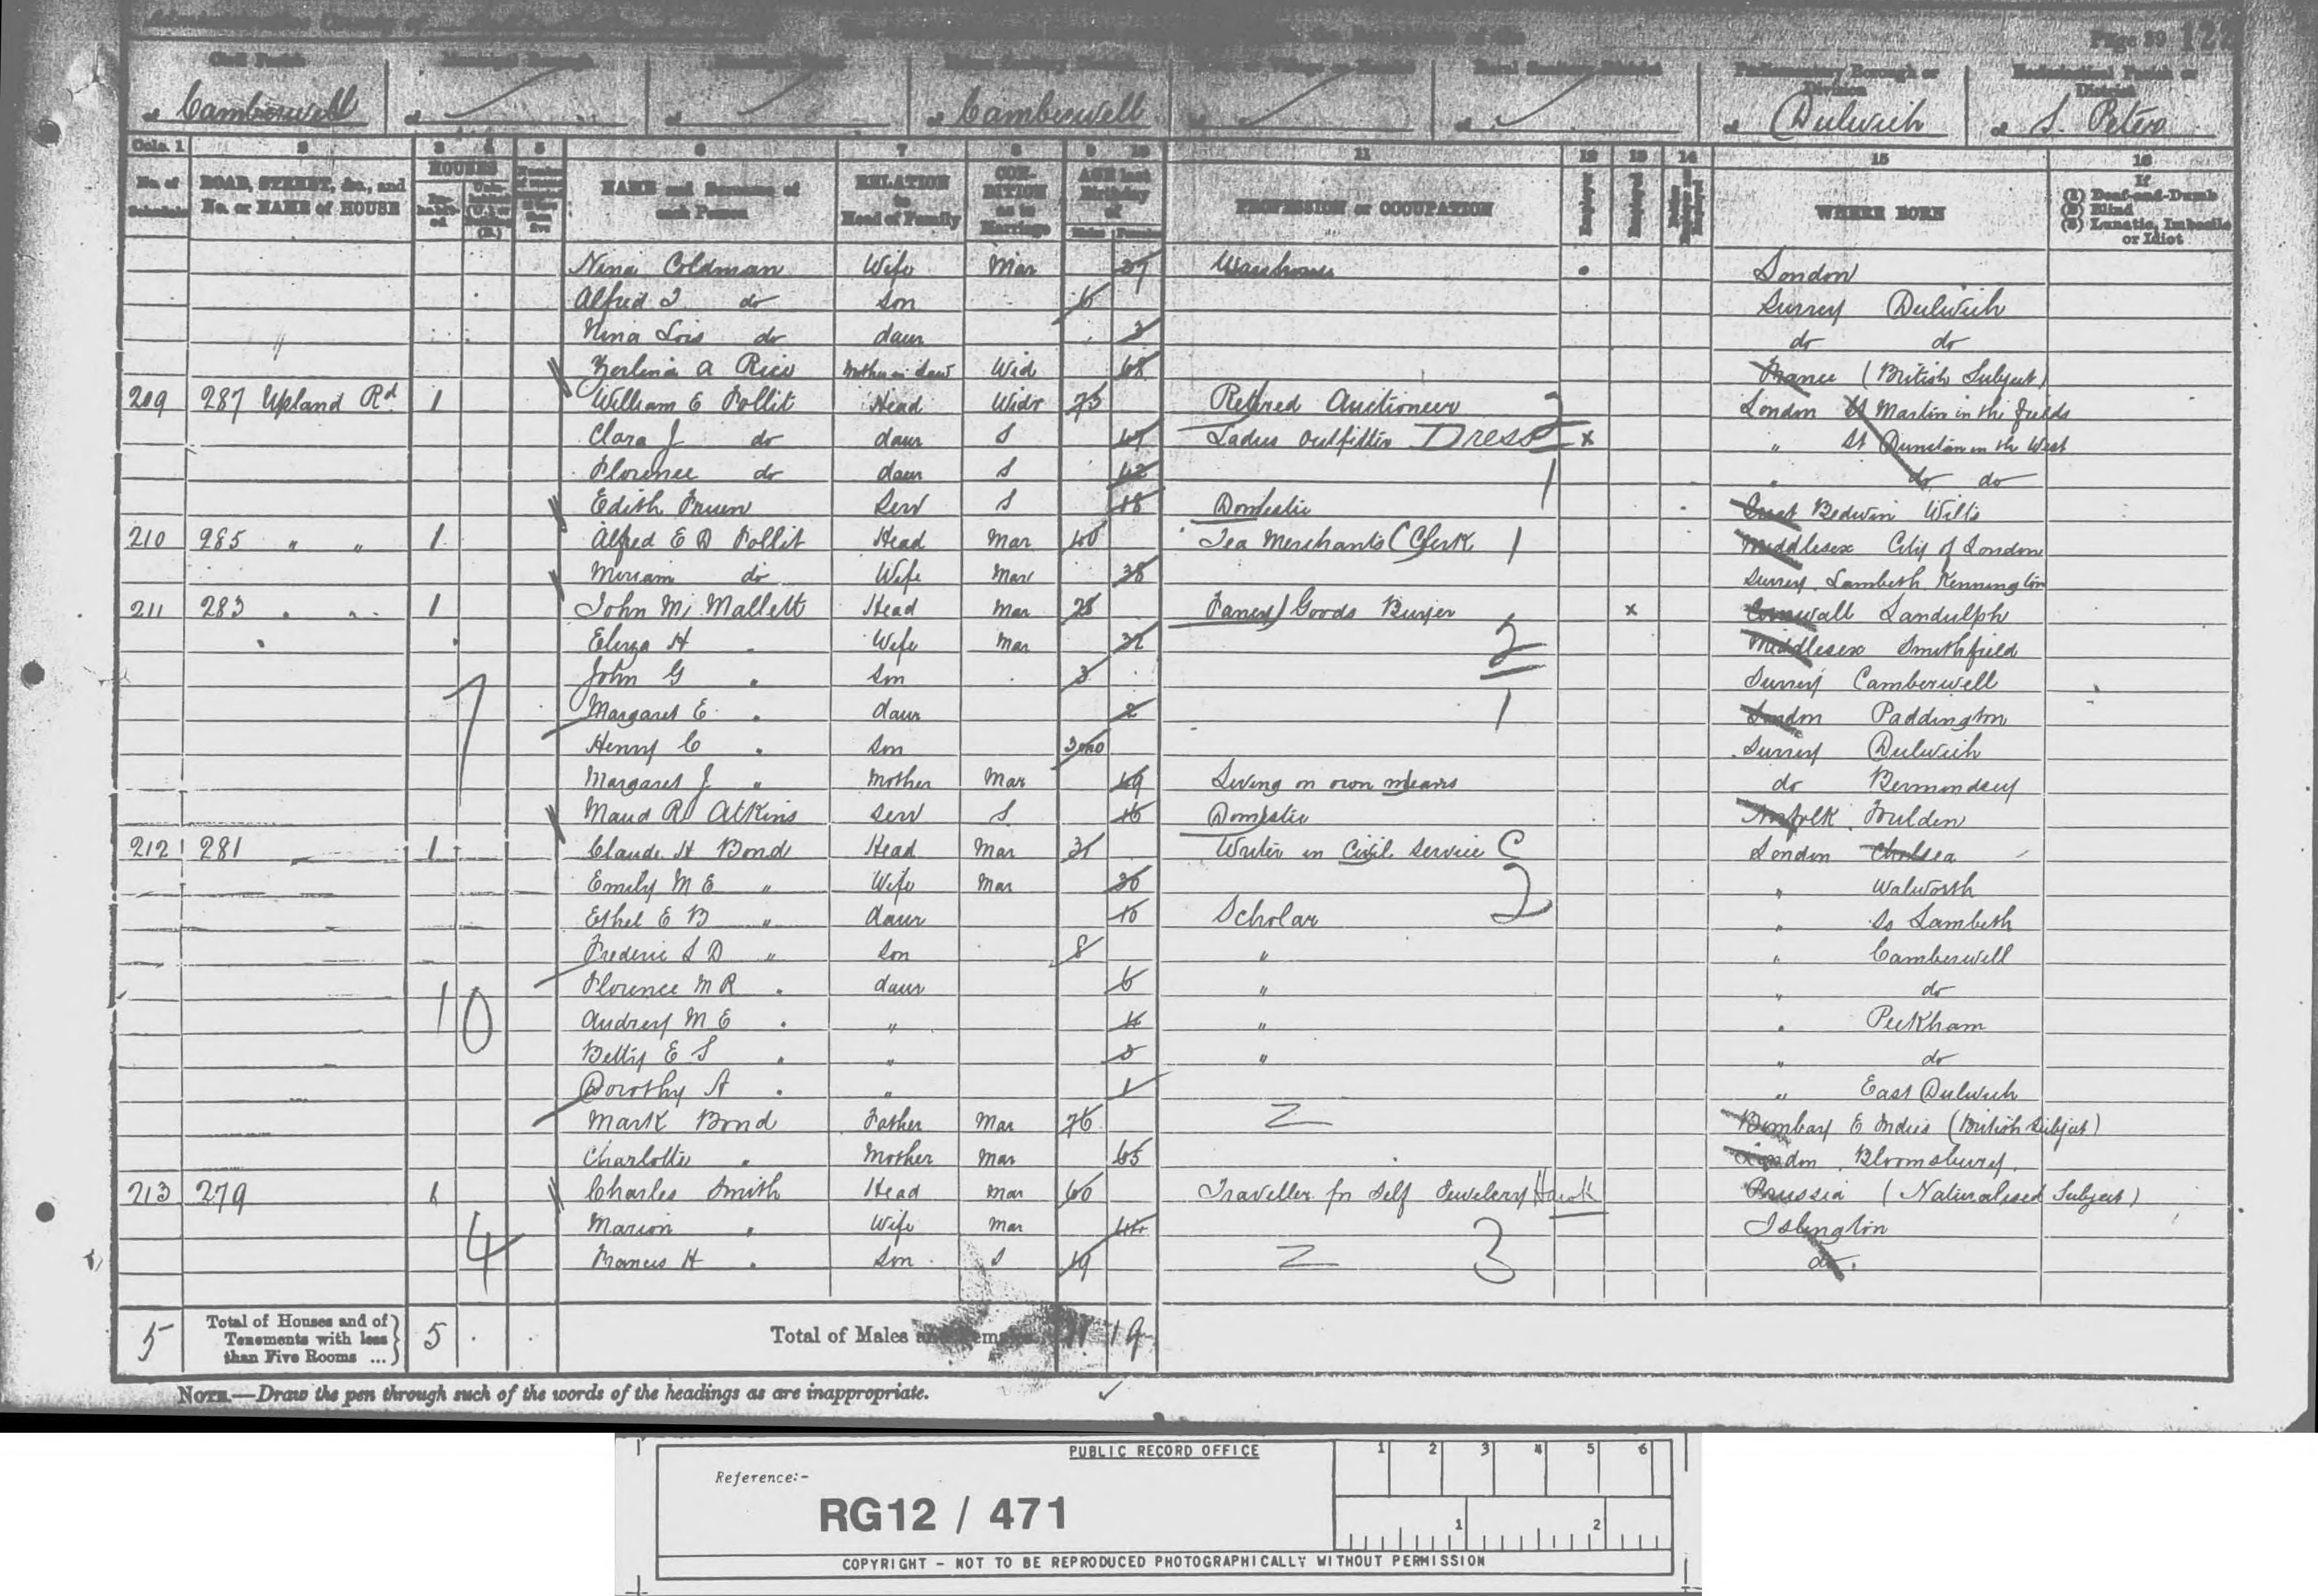 Page 39 122
Civil Parish
of Camberwell of of of Camberwell of of of Dulwich of S. Peters
Cols. 1 2 3 4 5 6 7 8 9 10 11 12 13 14 15 16
No. of Schedule ROAD, STREET, &c., and No. or NAME of HOUSE HOUSES NAME and Surname of each Person RELATION to Head of Family CONDITION as to Marriage AGE last Birthday of PROFESSION or OCCUPATION Employer Employed WHERE BORN If (1) Deaf-and-Dumb (2) Blind (3) Lunatic, Imbecile or Idiot
Nina Coldman Wife Mar 37 London
Alfred J do Son 6 Surrey Dulwich
" Nina Lois do daur 3 do do
A Rice Mother in Law Wid 68 France (British Subject)
209 287 Upland Rd 1 William E Pollit Head Widr 75 Retired Auctioneer London St Martin in the fields
Clara J do daur S 47 Ladies outfitter Dress 2 x " St Dunstan in the West
Florence do daur S 42 1 " do do
Edith Pruen Serv S 18 Domestic Great Bedwin Wilts
210 285 " " 1 Alfred E D Pollit Head Mar 40 Tea Merchants Clerk 1 Middlesex City of London
Miriam do Wife Mar 38 Surrey Lambeth Kennington
211 283 " " 1 John M Mallett Head Mar 28 Fancy Goods Buyer x Cornwall Landulph
Eliza H " Wife Mar 32 2 Middlesex Smithfield
John G " Son 3 Surrey Camberwell
7 Margaret E " daur 2 1 London Paddington
Henry C " Son 3mo Surrey Dulwich
Margaret J " Mother Mar 49 Living on own means do Bermondsey
Maud R Atkins Serv S 16 Domestic Norfolk Fulden
212 281 1 Claude H Bond Head Mar 31 Writer in Civil Service C London Chelsea
Emily M E " Wife Mar 30 2 " Walworth
Ethel E B " daur 10 Scholar " So Lambeth
Frederic S D " Son 8 " " Camberwell
10 Florence M R " daur 6 " " do
Audrey M E " " 4 " " Peckham
Bettie E S " " 3 " " do
Dorothy A " " 1 " East Dulwich
Mark Bond Father Mar 76 Bombay E Indies (British Subject)
Charlotte " Mother Mar 65 London Bloomsbury
213 279 1 Charles Smith Head Mar 60 Traveller for Self Jewelery Hawk Prussia (Naturalised Subject)
4 Marion " Wife Mar 44 Islington
Francis H " Son S 19 3 do
5 Total of Houses and of Tenements with less than Five Rooms ... 5 Total of Males and Females 11 19
NOTE.—Draw the pen through such of the words of the headings as are inappropriate.
PUBLIC RECORD OFFICE 1 2 3 4 5 6
Reference:-
RG12 / 471
1 2
COPYRIGHT - NOT TO BE REPRODUCED PHOTOGRAPHICALLY WITHOUT PERMISSION